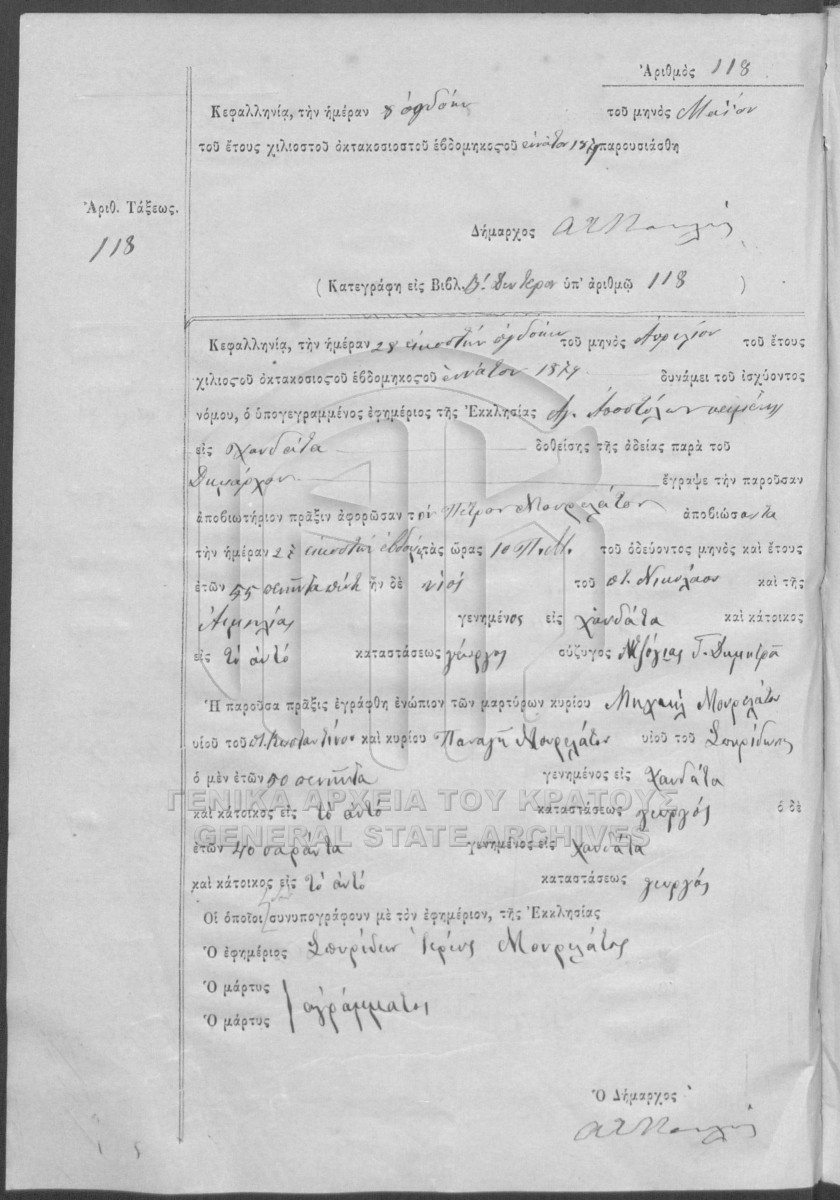 Ἀριθμὸς 118
Κεφαλληνίᾳ, τὴν ἡμέραν 8 ὀγδόην τοῦ μηνὸς Μαΐου
τοῦ ἔτους χιλιοστοῦ ὀκτακοσιοστοῦ ἑβδομηκοστοῦ ἐννάτου 1879 παρουσιάσθη
Ἀριθ. Τάξεως.
118
Δήμαρχος
( Κατεγράφη εἰς Βιβλ. Β! Δεύτερον ὑπ' ἀριθμῷ 118 )
Κεφαλληνίᾳ, τὴν ἡμέραν 28 εἰκοστὴν ὀγδόην τοῦ μηνὸς Ἀπριλίου τοῦ ἔτους
χιλιοςοῦ ὀκτακοσιοςοῦ ἑβδομηκοςοῦ ἐννάτου 1879 δυνάμει τοῦ ἰσχύοντος
νόμου, ὁ ὑπογεγραμμένος ἐφημέριος τῆς Ἐκκλησίας Ἁγ. Ἀποστόλων κειμένης
εἰς Χανδάτα δοθείσης τῆς ἀδείας παρὰ τοῦ
Δημάρχου ἔγραψε τὴν παροῦσαν
ἀποβιωτήριον πρᾶξιν ἀφορῶσαν τὸν Πέτρον Μουρελάτον ἀποβιώσαντα
τὴν ἡμέραν 27 εἰκοστὴν ἑβδόμ τὰς ὥρας 10 Π.Μ. τοῦ ὁδεύοντος μηνὸς καὶ ἔτους
ἐτῶν 55 πενῆντα πέντε ἦν δὲ υἱὸς τοῦ ποτ. Νικολάου καὶ τῆς
Αἰμηλίας γενημένος εἰς Χανδάτα καὶ κάτοικος
εἰς τὸ αὐτό καταστάσεως γεωργος σύζυγος Γ. Δημητρᾶ
Ἡ παροῦσα πρᾶξις ἐγράφθη ἐνώπιον τῶν μαρτύρων κυρίου Μηχαὴλ Μουρελάτου
υἱοῦ τοῦ ποτ. Κωσταντίνου καὶ κυρίου Παναγῆ Μουρελάτου υἱοῦ τοῦ Σπυρίδωνος
ὁ μὲν ἐτῶν 50 πενῆντα γενημένος εἰς Χανδάτα
καὶ κάτοικος εἰς τὸ αὐτό καταστάσεως γεωργός ὁ δὲ
ΓΕΝΙΚΑ ΑΡΧΕΙΑ ΤΟΥ ΚΡΑΤΟΥΣ
GENERAL STATE ARCHIVES
ἐτῶν 40 σαράντα γενημένος εἰς Χανδάτα
καὶ κάτοικος εἰς τὸ αὐτό καταστάσεως γεωργός
Οἱ ὁποῖοι συνυπογράφουν μὲ τὸν ἐφημέριον, τῆς Ἐκκλησίας
Ὁ ἐφημέριος Σπυρίδων Ἱερεὺς Μουρελάτος
Ὁ μάρτυς
Ὁ μάρτυς ἀγράμματοι
Ὁ Δήμαρχος